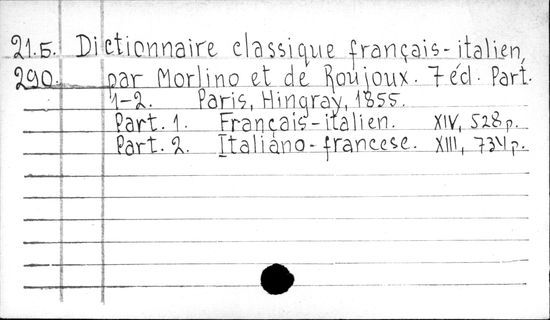 21.Б. Dictionnaire classique français-italien,
290. par Morlino et de Roujoux. 7 éd. Part.
1-2. Paris, Hingray, 1855.
Part. 1. Français-italien. XIV, 528 p.
Part. 2. Italiano-francese. XIII, 734 p.